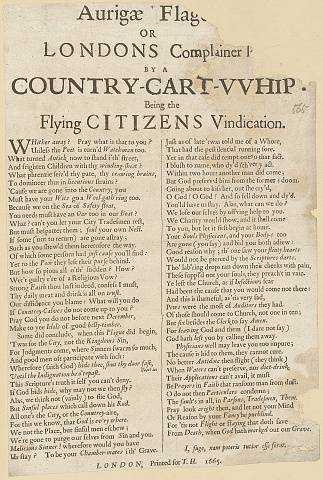 Aurigæ Flage
OR
LONDONS Complainer
BY A
COUNTRY-CART-VVHIP.
Being the
Flying CITIZENS Vindication.
WHither away? Pray what is that to you?
Unless the Poet is turn'd Watchman too.
What turned Antick, now to stand i'th' street,
And frighten Children with thy winding-sheet?
What phrensie seiz'd thy pate, thy crazing brains,
To domineer thus in licentious strains?
'Cause we are gone into the Country, you
Must have your Wits gon a Wool-gath'ring too.
Because we on the Sea of Safety float,
You needs must have an Oar too in our Boat?
What? can't you let your City Tradesmen rest,
But must bespatter them; foul your own Nest.
If some (not to return) are gone astray
Such as you shew'd them heretofore the way.
Of which some passions had just cause you'll find:
Yet to the Poor they left their purse behind.
But how so pious all o'th' sudden? How?
Wer't guilty e're of a Religious Vow?
Strong Faith thou hast indeed, confess I must,
Thy daily meat and drink is all on trust.
Our diffidence you blame: What will you do
If Country-Calves do not come up to you?
Pray God you do not before next December,
Make to yee Idols of good Bully-timber.
Some did conclude, when this Plague did begin,
'Twas for the City, not the Kingdoms Sin,
For Judgments come, where Sinners swarm so much,
And good men oft participate with such:
Wherefore (saith God) hide thee, shut thy door fast,
Until the Indignation be o'repast.
This Scripture's truth it self you can't deny.
If God bids hide, why may not we then fly?
Alas, we do think not (vainly) to fly the God,
But Sinful places which call down his Rod.
All on't the City, or the Country-aire,
For this we know, that God is ev'ry where.
We not the Place, but sinful men eschew;
We're gone to purge our selves from Sin and you.
Malicious Sinner? wherefore would you have
Us stay? To be your Chamber-mates i'th' Grave.
Just as of late 'twas told me of a Whore,
That had the pestilential running sore,
Yet in that case did tempt one to that fact.
I blush to name, who dy'd i'th' very act.
Within two hours another man did come;
But God preserved him from the former's doom.
Going about to kiss her, out she cry'd,
O God! O God! And so fell down and dy'd.
You'ld have us stay. And what can we do?
We lose our lives by offering help to you.
We Charity would show, and it shall come
To you, but let it first begin at home.
Your Souls Physicians, and your Bodies too
Are gone (you say) and bid you both adieu.
Good reason why; th' one saw your stony hearts
Would not be pierced by the Scriptures darts.
Tho' tears ran down their cheeks with pain,
These suppos'd ne'er your souls, they preach't in vain.
Ye left the Church, as if Infectious fear
Had been the cause that you would come not there:
And this is shameful, as 'tis very sad,
Pews were the most of Auditors they had.
Of those should come to Church, not one in ten;
But for besides the Clerk to say Amen.
For leaving God and them (I dare not say)
God hath left you by calling them away.
Physicians well may leave you too impure;
The cause is hid to them, they cannot cure.
No better Antidote then flight (they think)
When Waters can't preserve, nor diet-drink.
Their Applications can't avail, it must
Be Prayers in Faith that ransome man from dust.
O do not then Particulars condemn;
The fault's in all, in Parsons, Tradesmen, Them.
Pray look aright then, and let not your Mind
Or Reason by your Fancy be purblind.
For 'tis not Flight or Staying that doth save
From Death, when God hath markt out our Grave.
I, fuge, nam poteris tutior esse foras.
LONDON, Printed for T. H. 1665.